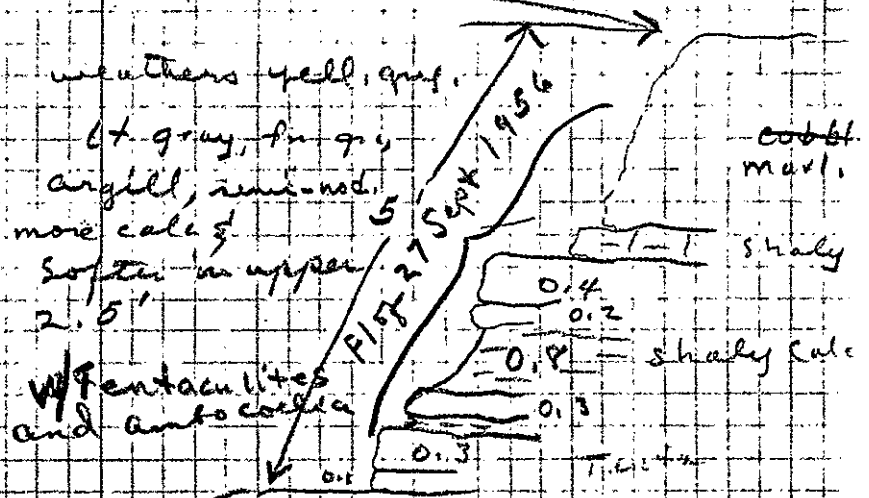 weathers yell. gray.
lt gray, fn gr,
argill, semi-nod.
more calc &
softer in upper
2.5'
w/Tentaculites
and ambocoelia
5'
27 Sept 1956
cobbl.
marl.
shaly
0.4
0.2
0.8
shaly calc
0.3
0.3
0.1